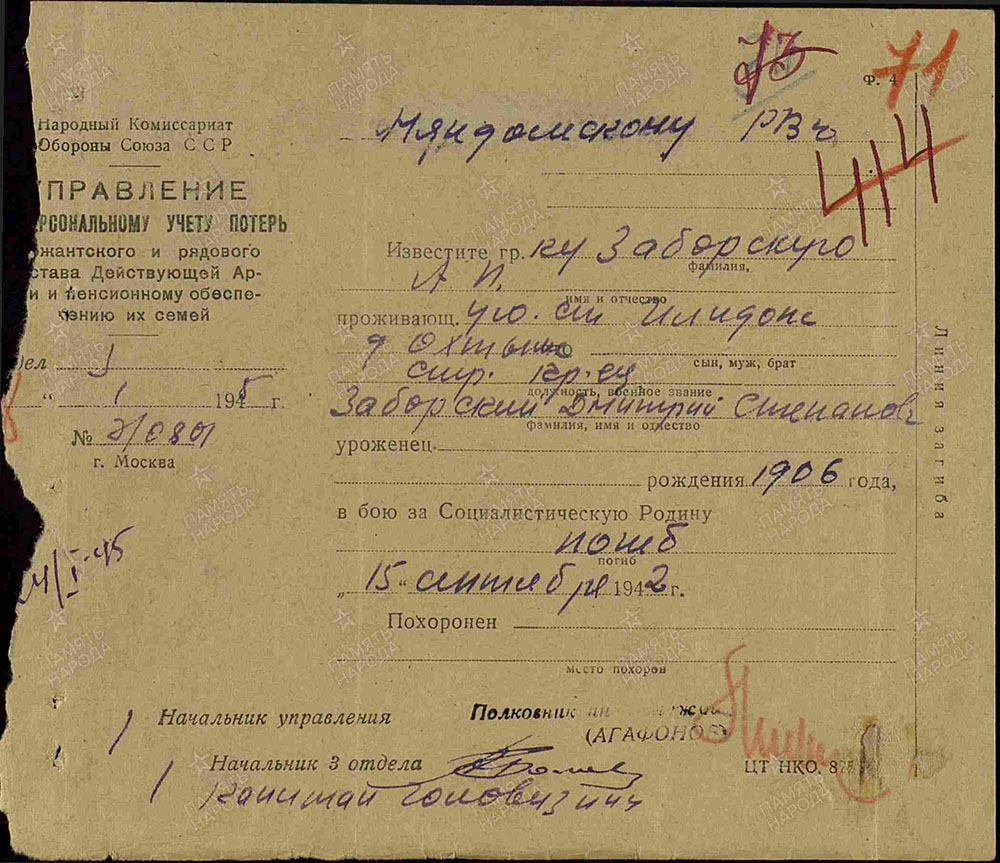 73
71
Ф. 4
Няндомскому РВк
414
Народный Комиссариат
Обороны Союза ССР
УПРАВЛЕНИЕ
ЕРСОНАЛЬНОМУ УЧЕТУ ПОТЕРЬ
жантского и рядового
става Действующей Ар-
и и пенсионному обеспе-
чению их семей
дел 3
" 1 1945 г.
№ 2/0801
г. Москва
4/I-45
Известите гр. ку Заборскую
фамилия,
А П.
имя и отчество
проживающ. ую. ст
д
сын, муж, брат
стр. кр-ец
должность, военное звание
Заборский Дмитрий Степанов
фамилия, имя и отчество
уроженец
рождения 1906 года,
в бою за Социалистическую Родину
погиб
погиб
„15" сентября 1942 г.
Похоронен
место похорон
Начальник управления Полковник
(АГАФОНОВ)
Начальник 3 отдела
ЦТ НКО. 82
капитан Головизнин
Линия загиба
ПАМЯТЬ НАРОДА